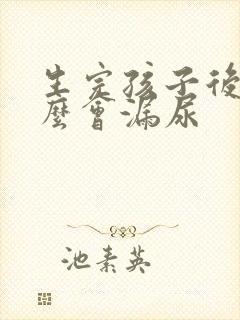 生完孩子後
麼會漏尿
池素英